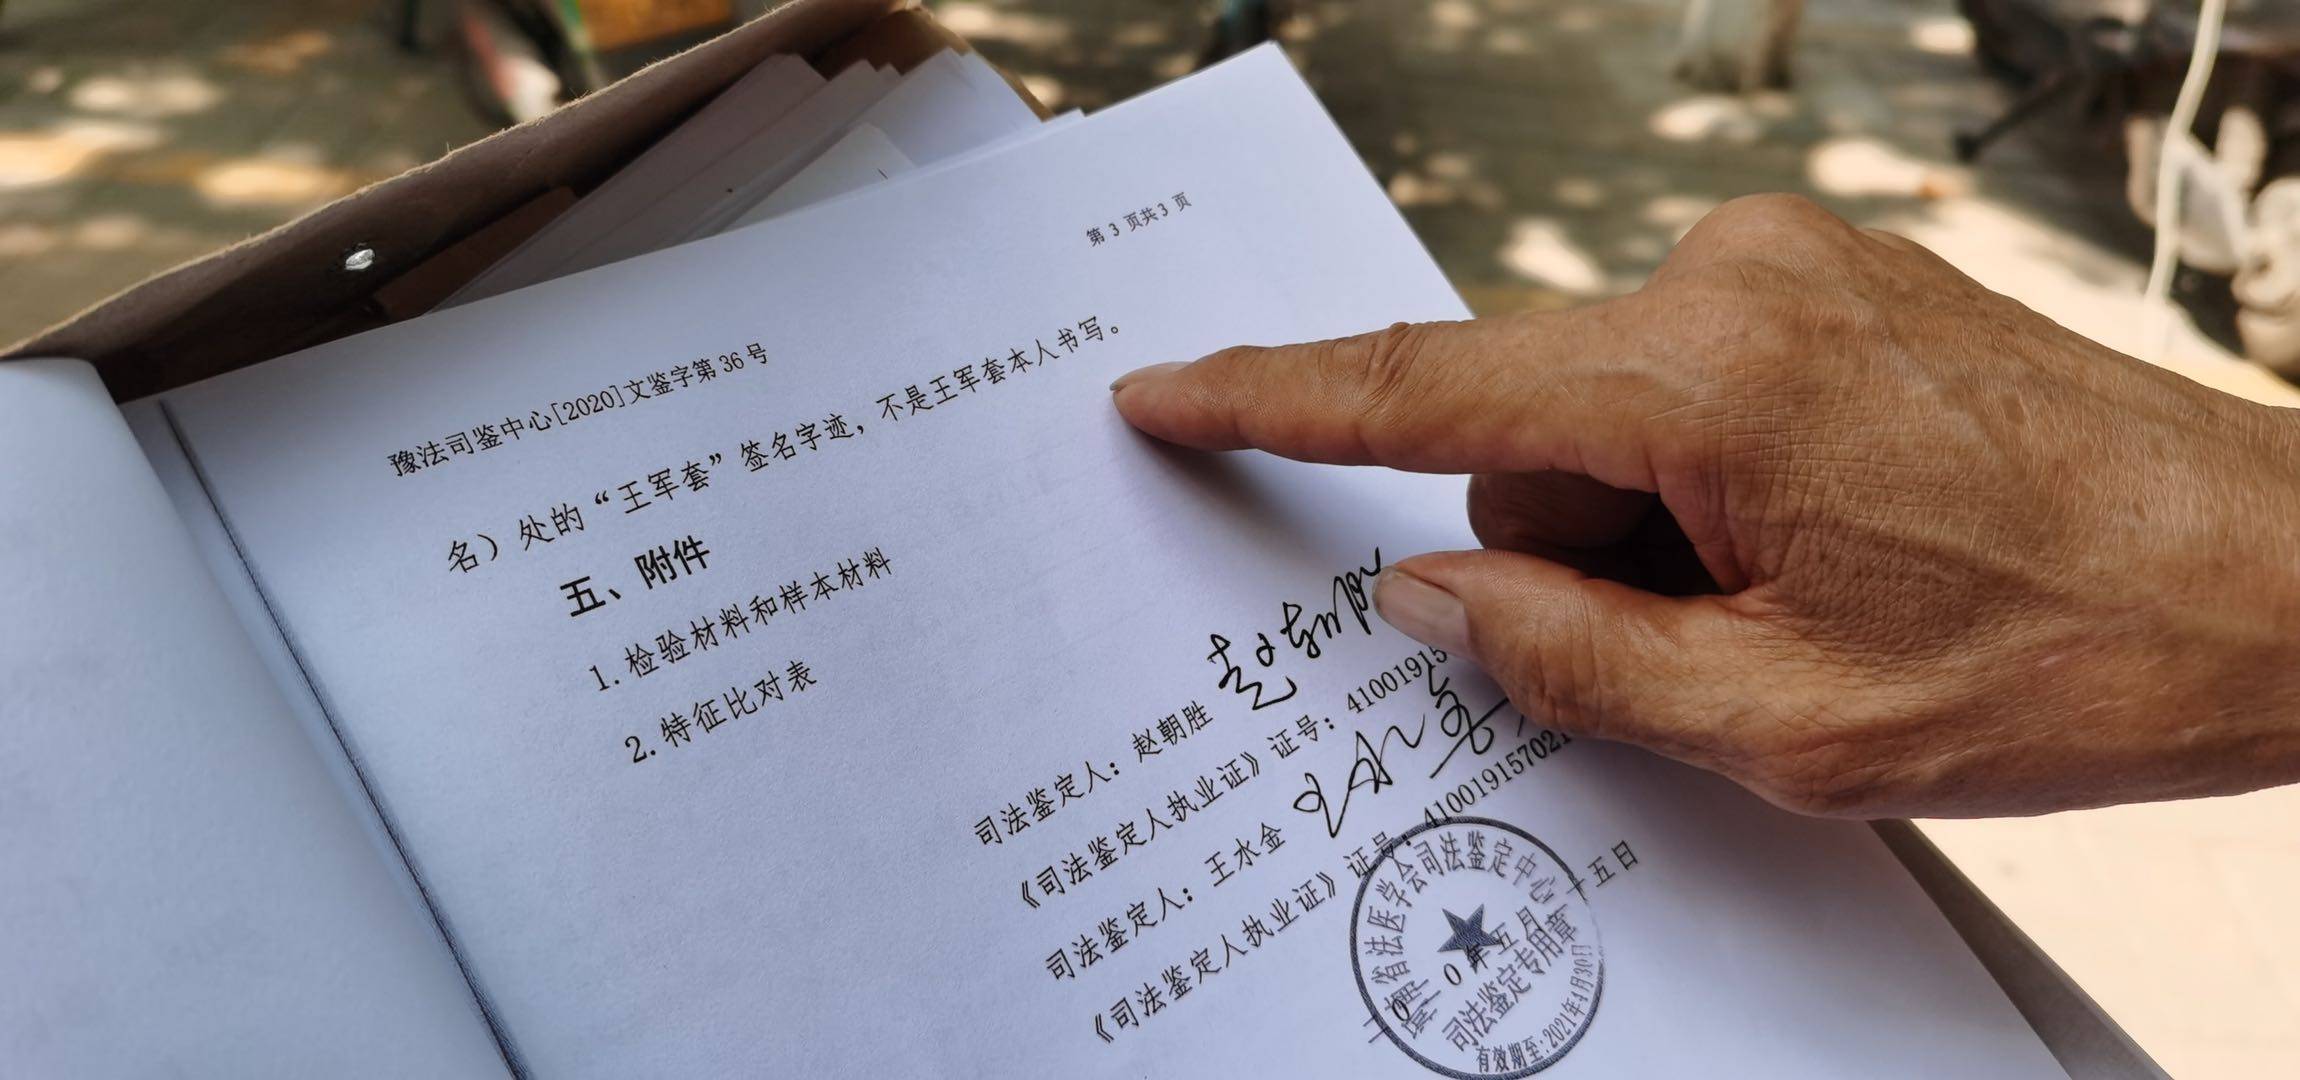 第 3 页共 3 页
豫法司鉴中心[2020]文鉴字第 36 号
名）处的“王军套”签名字迹，不是王军套本人书写。
五、附件
1. 检验材料和样本材料
2. 特征比对表
司法鉴定人：赵朝胜
《司法鉴定人执业证》证号：41001915
司法鉴定人：王水金
《司法鉴定人执业证》证号：410019157021
二0 0年五月二十五日
省法医学会司法鉴定中心
司法鉴定专用章
有效期至:2021年4月30日